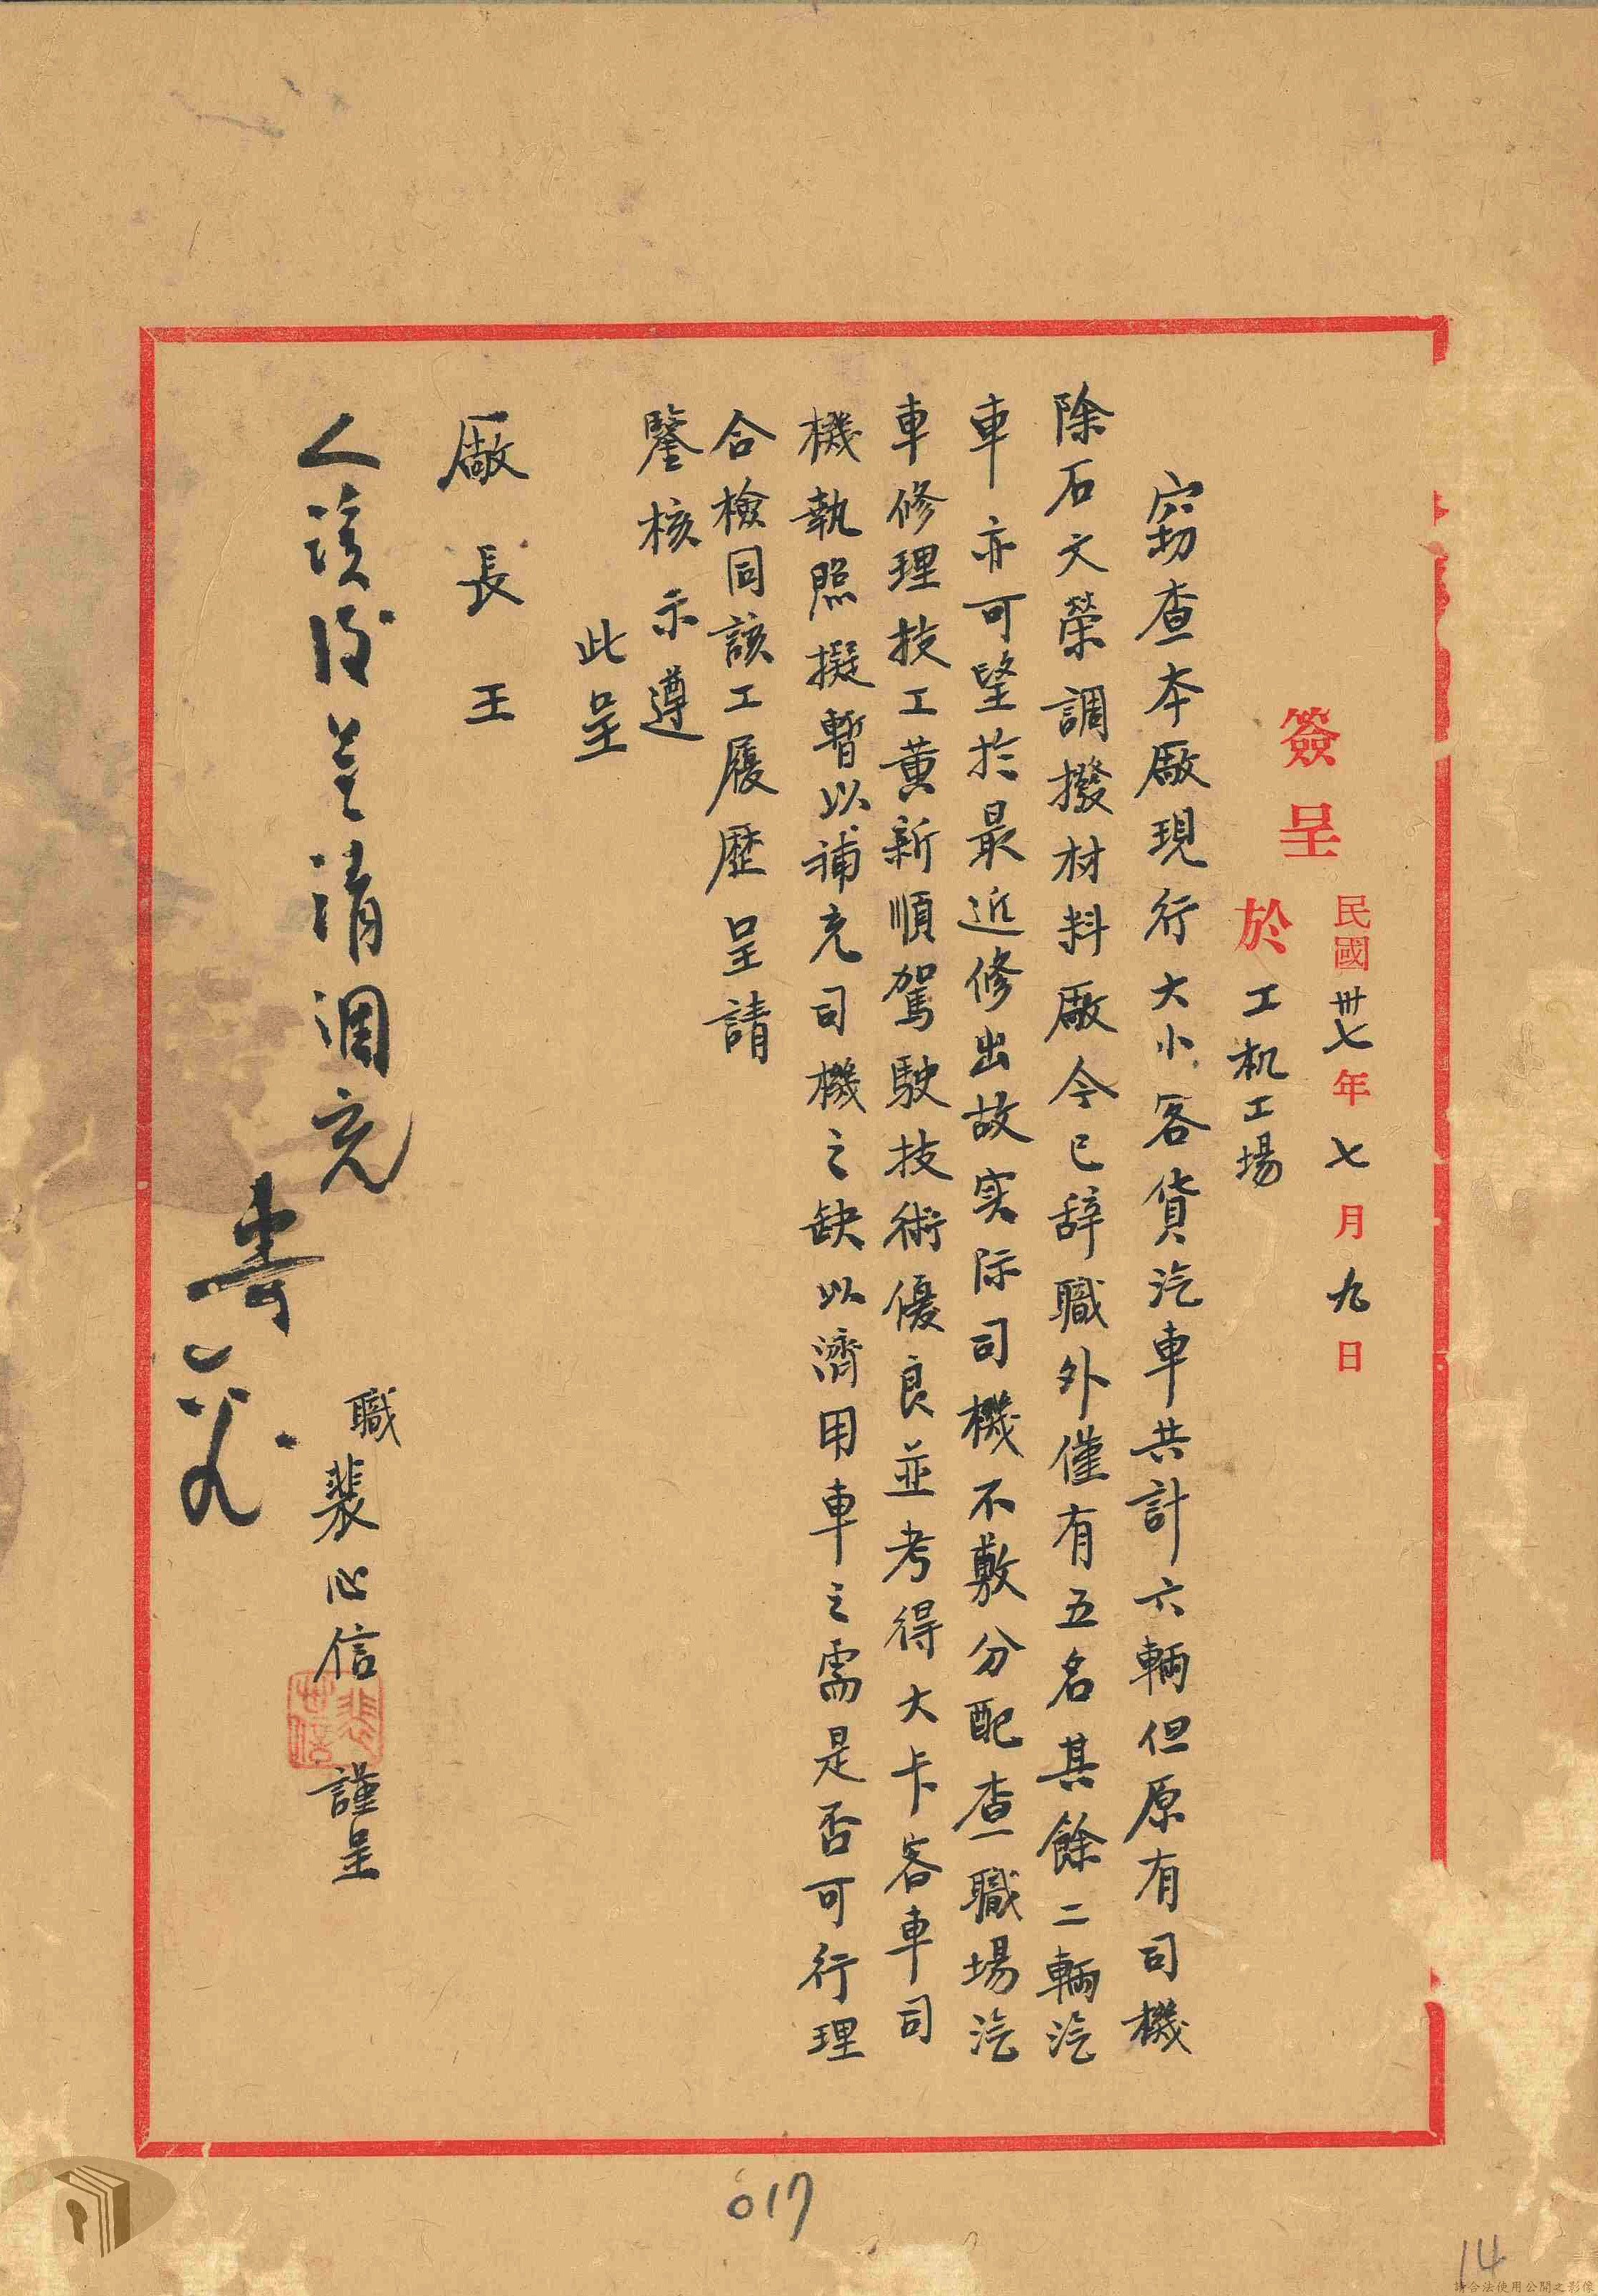 民國卅七年七月九日
簽呈
於工机工場
竊查本廠現行大小客貨汽車共計六輛但原有司機
除石文榮調撥材料廠令已辞職外僅有五名其餘二輛汽
車亦可望於最近修出故实际司機不敷分配查職場汽
車修理技工黄新順駕駛技術優良並考得大卡客車司
機執照擬暫以補充司機之缺以濟用車之需是否可行理
合檢同該工履歷呈請
鑒核示遵
此呈
廠長王
職裴心信謹呈
請調充
017
14
請合法使用公開之影像